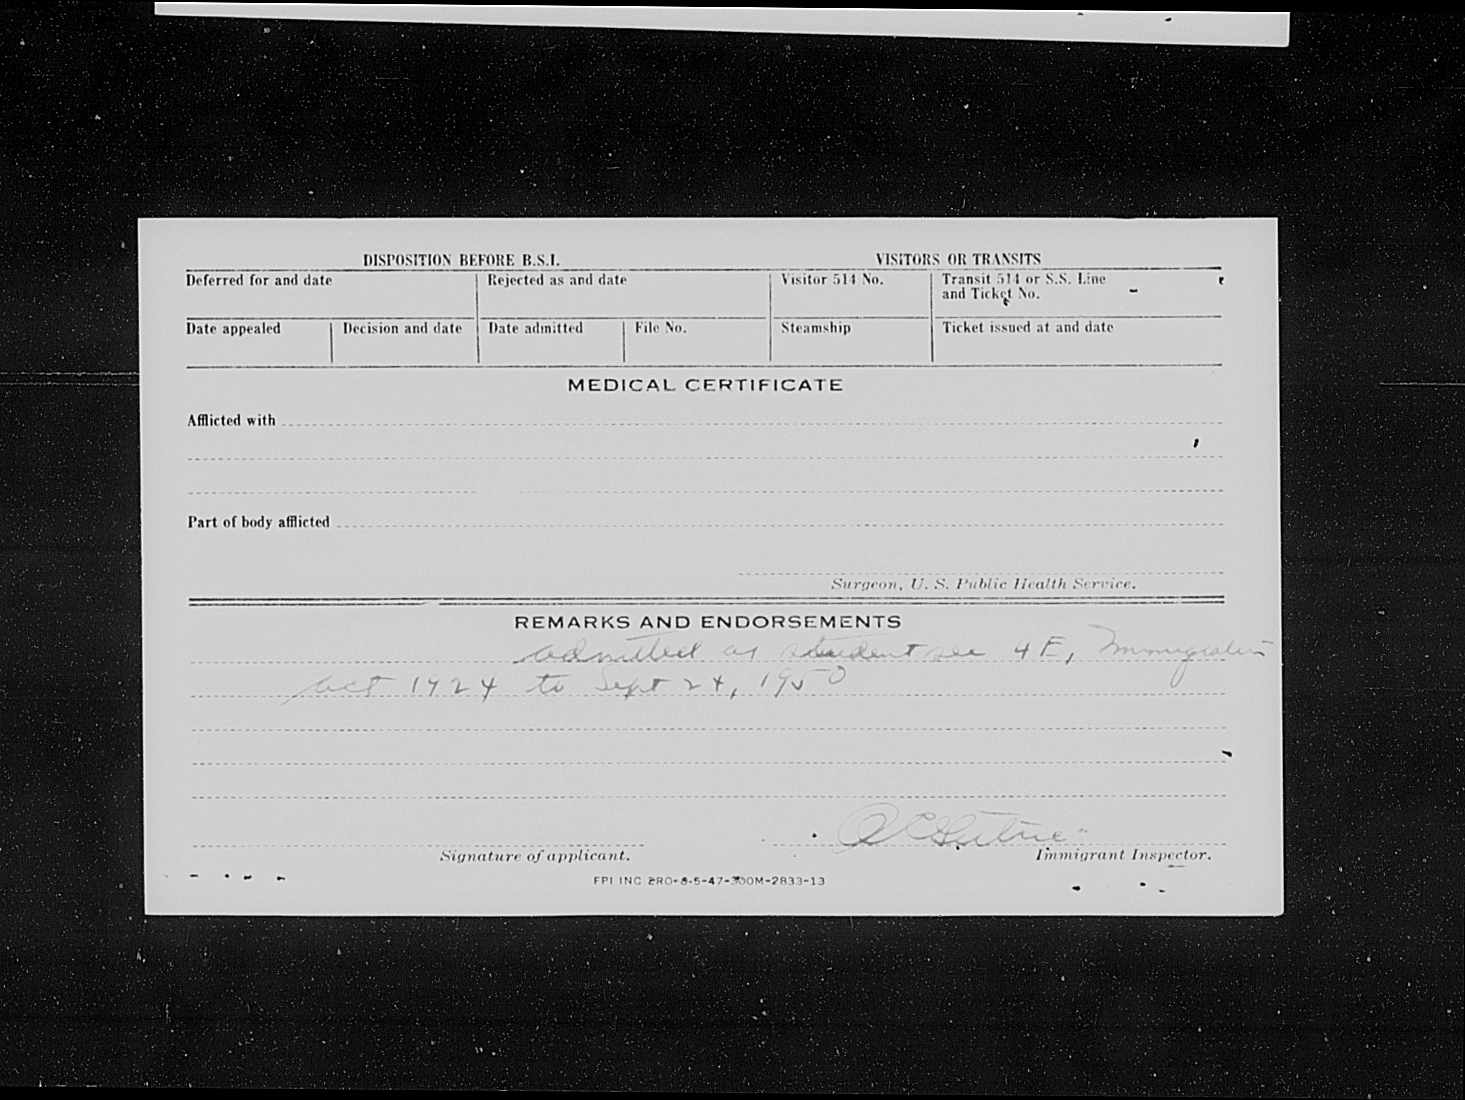 DISPOSITION BEFORE B.S.I. VISITORS OR TRANSITS
Deferred for and date Rejected as and date Visitor 514 No. Transit 514 or S.S. Line
and Ticket No.
Date appealed Decision and date Date admitted File No. Steamship Ticket issued at and date
MEDICAL CERTIFICATE
Afflicted with
Part of body afflicted
Surgeon, U. S. Public Health Service.
REMARKS AND ENDORSEMENTS
admitted as student sec 4E, Immigration
act 1924 to Sept 24, 1950
Signature of applicant. Immigrant Inspector.
FPI INC PRO-8-5-47-300M-2833-13